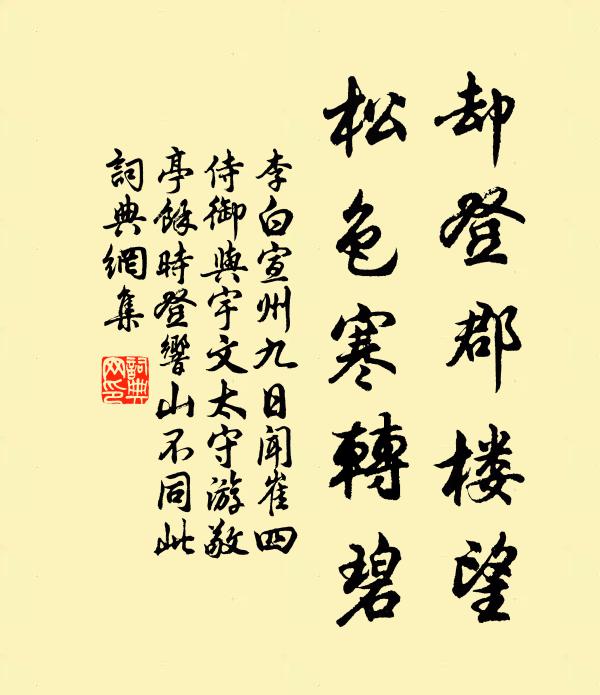 却登郡楼望
松色寒轉碧
李白宣州九日闻崔四
侍御與宇文太守游敬
亭餘時登響山不同此
詞典網集
詞典
网印